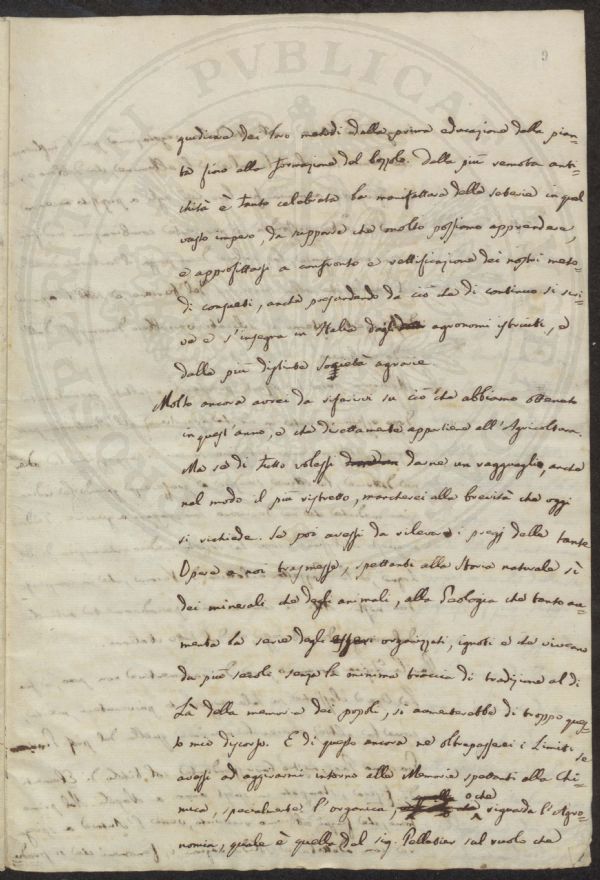 PVBLICA
9
giudicare dei loro metodi dalla prima educazione della pian=
ta fino alla formazione del bozzolo. Dalla più remota anti=
chità è tanto celebrata la manifattura delle seterie in quel
vasto impero, da supporre che molto possiamo apprendere,
e approfittarsi a confronto e rettificazione dei nostri meto=
di consueti, anche prescindendo da ciò che di continuo si scri=
ve e s'insegna in Italia dagli agronomi istruiti, e
dalle più distinte società agrarie.
Molto ancora avrei da riferirvi su ciò che abbiamo ottenuto
in quest'anno, e che direttamente appartiene all'Agricoltura.
Ma se di tutto volessi darne un ragguaglio, anche
nel modo il più ristretto, mancherei alla brevità che oggi
si richiede. Se poi avessi da rilevare i pregj delle tante
Opere a noi trasmesse, spettanti alla Storia naturale sì
dei minerali che degli animali, alla Geologia che tanto au=
menta la serie degli esseri organizzati, ignoti e che vivevano
da più secoli senza la minima traccia di tradizione al di
là della memoria dei popoli, si aumenterebbe di troppo ques=
to mio discorso. E di questo ancora ne oltrepasserei i limiti se
avessi ad aggirarmi intorno alle Memorie spettanti alla Chi=
mica, specialmente l'organica, o che riguarda l'Agro=
nomia, quale è quella del sig. Pelletier sul ruolo che